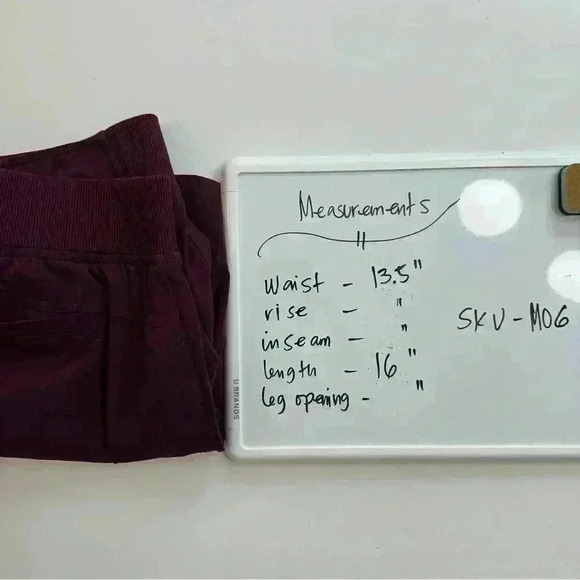 Measurements
Waist - 13.5"
rise - "
inseam - "
length - 16"
leg opening - "
SKU-M06
U BRANDS